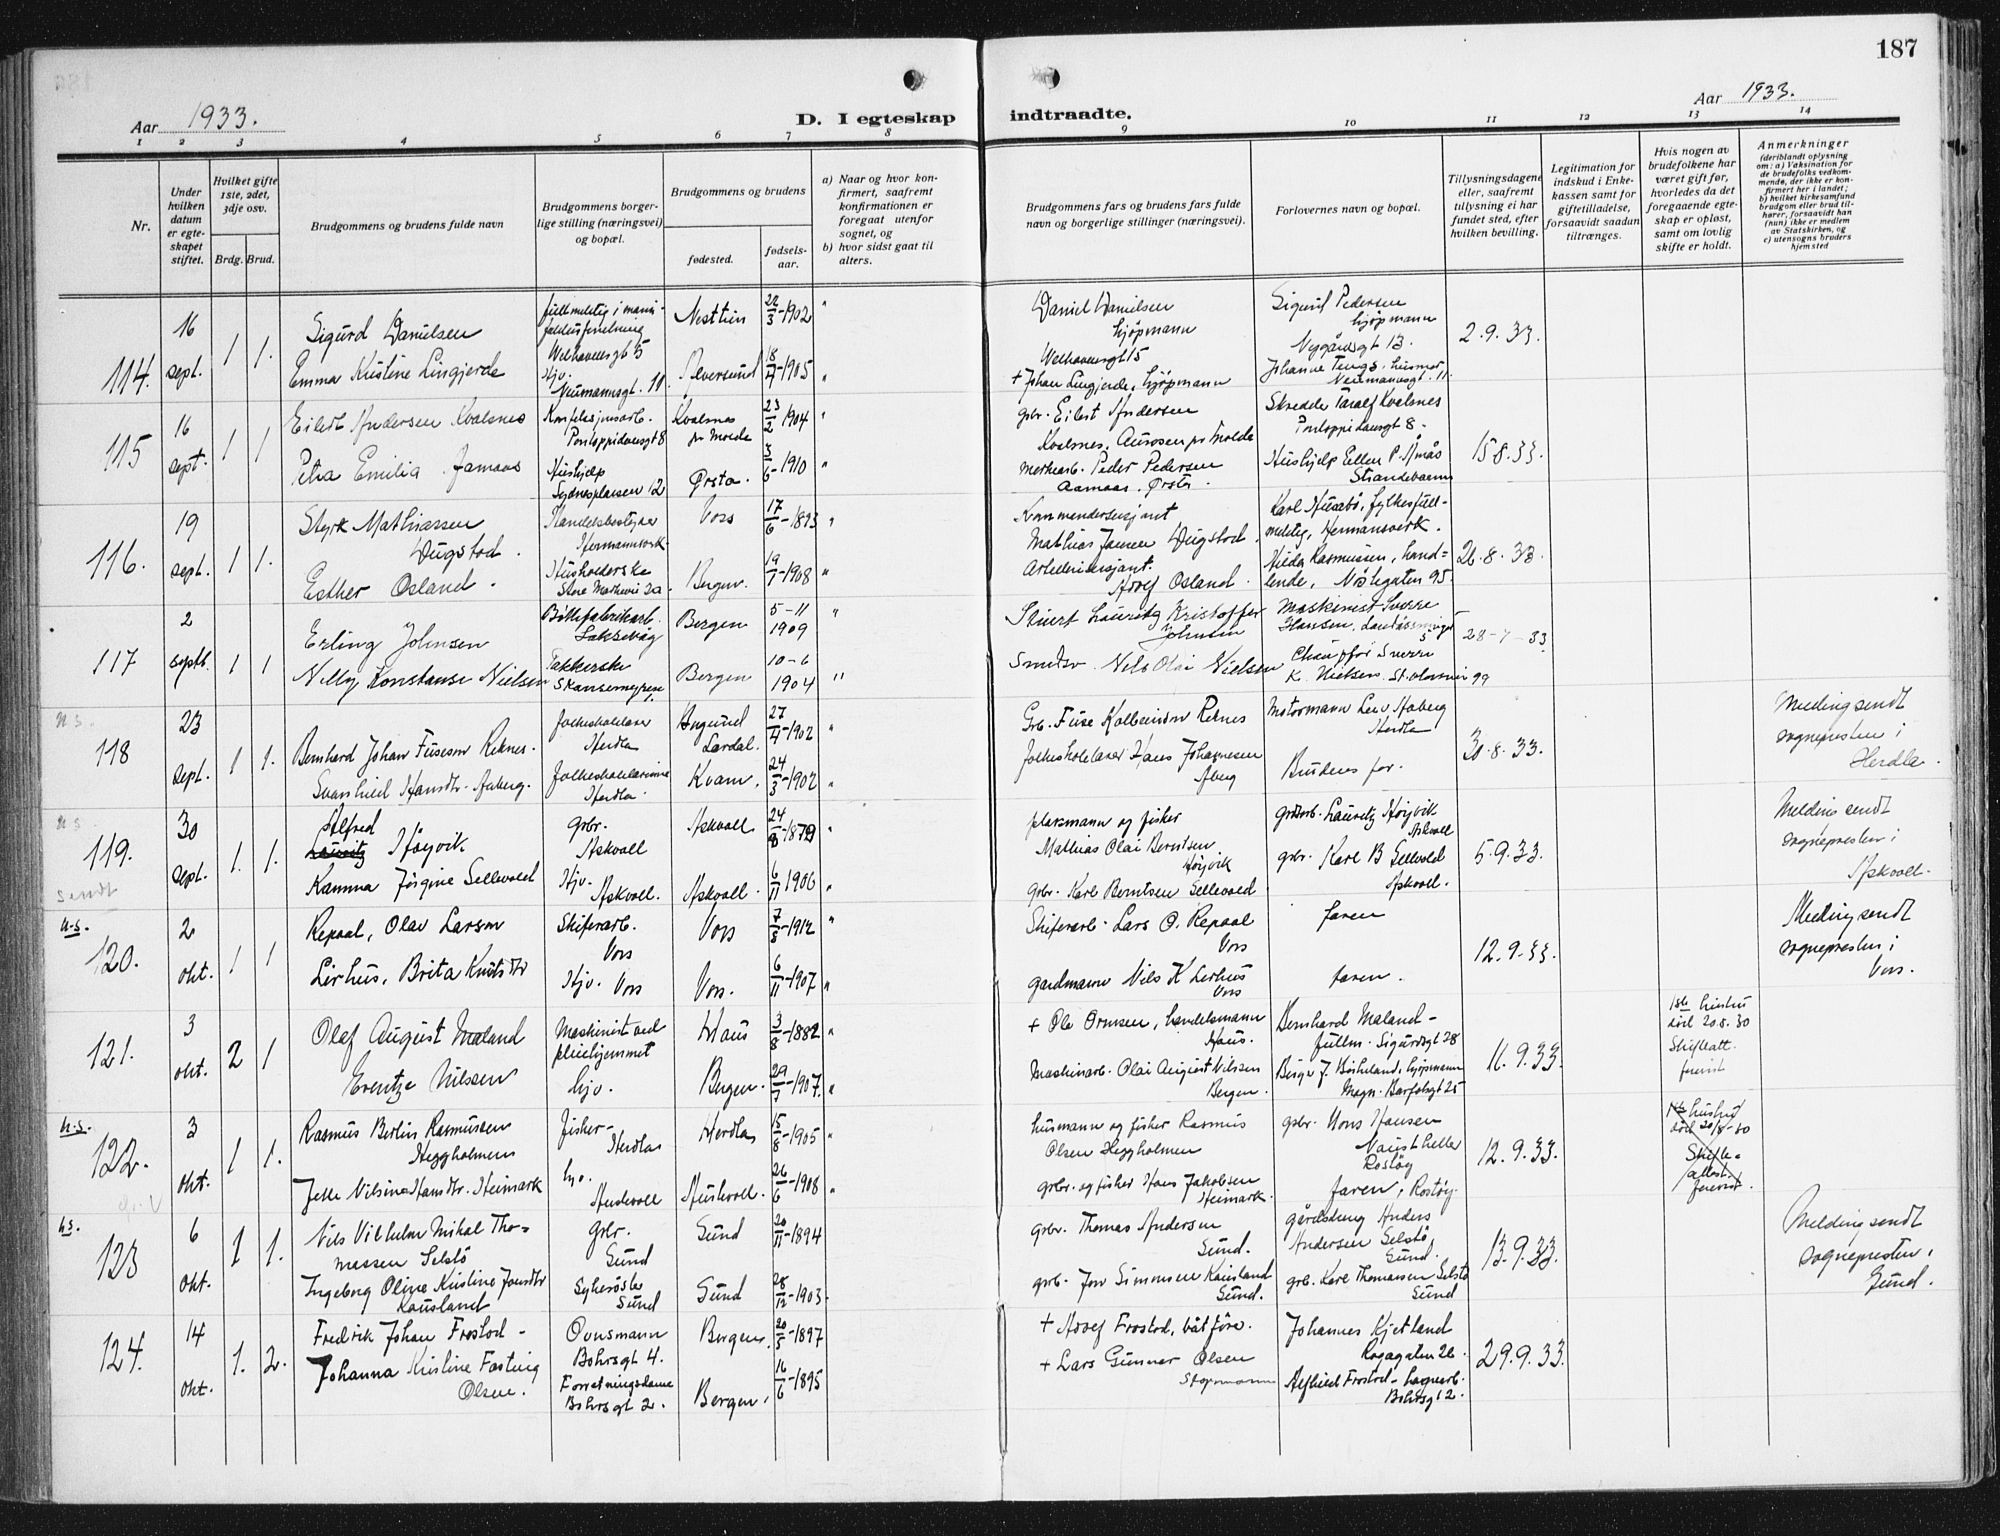 187
Aar 1933.
D. I egteskap indtraadte.
Aar 1933.
1 2 3 4 5 6 7 8 9 10 11 12 13 14
Nr.
Under hvilken datum er egteskapet stiftet.
Hvilket gifte 1ste, 2det, 3dje osv.
Brdg. Brud.
Brudgommens og brudens fulde navn
Brudgommens borgerlige stilling (næringsvei) og bopæl.
Brudgommens og brudens
fødested.
fødselsaar.
a) Naar og hvor konfirmert, saafremt konfirmationen er foregaat utenfor sognet, og
b) hvor sidst gaat til alters.
Brudgommens fars og brudens fars fulde navn og borgerlige stillinger (næringsvei).
Forlovernes navn og bopæl.
Tillysningsdagene eller, saafremt tillysning ei har fundet sted, efter hvilken bevilling.
Legitimation for indskud i Enkekassen samt for giftetilladelse, forsaavidt saadan tiltrænges.
Hvis nogen av brudefolkene har været gift før, hvorledes da det foregaaende egteskap er opløst, samt om lovlig skifte er holdt.
Anmerkninger
(deriblandt oplysning om: a) Vaksination for de brudefolks vedkommende, der ikke er konfirmert her i landet; b) hvilket kirkesamfund brudgom eller brud tilhører, forsaavidt han (hun) ikke er medlem av Statskirken, og c) utensogns bruders hjemsted
114. 16 sept. 1 1.
Sigurd Danielsen
Emma Kristine Lingjerde
Welhavensgt 5
Hjv.
Neumannsgt. 11.
22/3-1902
Alversund 18/4-1905
Daniel Danielsen
kjøpmann
Welhavensgt 15
+ Johan Lingjerde, kjøpmann
Sigurd Pedersen
kjøpmann
Nygårdsgt 13.
Neumannsgt. 11
2.9.33.
115 16 sept. 1 1
Eilert Andersen Kvalsnes
Petra Emilia Aamaas
Pontoppidansgt 8
Hushjelp
Sydnesplassen 12
Kvalsnes
pr Molde
23/2-1904
Ørsta. 3/6-1910
gbr. Eilert Andersen
Kvalsnes, Aurosen pr Molde
Peder Pedersen
Aamaas. Ørsta.
Skredder Taralf Kvalsnes
Pontoppidansgt 8.
Hushjelp Ellen P. Åmås
15 8.33.
116. 19 sept. 1 1.
Styrk Mathiassen
Dugstad.
Esther Osland.
Handelsbestyrer
Hermansverk
Husholderske
Vors 17/6-1893
Bergen. 19/7-1908
Mathias Jansen Dugstad.
Adolf Osland.
Karl Husabø, fylkesfullmektig, Hermansverk.
Hilda Rasmussen, handlende, Nøstegaten 95.
26.8.33
117 2 septb. 1 1
Erling Johnsen
Nelly Konstanse Nielsen
Laksevåg
Bergen 5-11 1909
Bergen 10-6 1904
Stuert Lauritz Kristoffer
Johnsen
Nils Olai Nielsen
Maskinist Sverre
Hansen.
Chauffør Sverre
K. Nielsen. St. olavsvei 99
28-7-33
118 23 sept. 1 1.
Bernhard Johan Fuseson Reknes.
Svanhild Hansdtr. Aaberg.
Folkeskolelærer
Herdla
Folkeskolelærerinne
Herdla.
Lærdal. 27/4-1902
Kvam. 24/3-1902
Gbr. Fuse Kolbeinson Reknes
folkeskolelærer Hans Johannesen
Åberg
Motormann Leiv Aaberg
Herdla
Brudens far.
30.8.33.
Melding sendt
sognepresten i
Herdla.
119. 30 sept. 1. 1.
sendt
Alfred
Høyvik
Kamma Jørgine Sellevold
gbr.
Askvoll
Hjv.
Askvoll.
Askvoll 24/8-1879
Askvoll. 6/11-1906
plassmann og fisker
Mathias Olai Berntsen
Høyvik
gbr. Karl Berntsen Sellevold
gardarb. Lauritz Høyvik
Askvoll
gbr. Karl B Sellevold
Askvoll.
5.9.33.
Melding sendt
sognepresten i
Askvoll.
u.s.
120. 2 okt. 1 1
Repaal, Olav Larson
Lirhus, Brita Knutsdtr
Skiferarb.
Vors
Hjv. Vors
Vors 7/8-1912
Vors. 6/11-1907
Skiferarb. Lars O. Repaal
Vors
gardmann Nils K Lirhus
Vors
faren
faren.
12.9.33.
Melding sendt
sognepresten i
Vors.
121. 3 okt. 2 1
Olaf August Maland
Erentze Nilssen
Maskinist ved
pleiehjemmet
hjv.
Haus 3/8-1882
Bergen. 29/7-1907.
+ Ole Ormsen, handelsmann
Haus.
Maskinarb. Olai August Nilssen
Bergen.
Bernhard Maland-
fullm. Sigurdsgt 28
Birger J. Birkeland, kjøpmann
Magn. Barfotsgt 25
16.9.33.
1ste hustru
død 20.8.30
Skifteatt.
forevist
u.s.
122. 3 okt. 1 1.
Rasmus Berlin Rasmussen
Heggholmen
Nilsina Hansdtr. Heimark
Fisker-
Herdla
hjv.
Austevoll
Herdla 15/8-1905
Austevoll. 26/6-1908
husmann og fisker Rasmus
Olsen Heggholmen
gbr. og fisker Hans Jakobsen
Heimark.
gbr. Mons Hansen
Rostøy
faren, Rostøy.
12.9.33.
1ste hustru
død 20/8-30
Skifteattest
forevist.
u.s.
123 6 okt. 1 1.
Nils Vilhelm Mikal Thomassen Selstø
Ingeborg Oline Kristine Jonsdtr
Kausland
gbr.
Sund
Sykesøster
Sund
Sund 20/11-1894
Sund 28/12-1903.
gbr. Thomas Andersen
Sund.
gbr. Jon Simonsen Kausland
Sund.
gårdsdreng Anders
Andersen Selstø,
Sund.
gbr. Karl Thomassen Selstø
Sund
13.9.33.
Melding sendt
sognepresten i
Sund.
124. 14 okt. 1. 2.
Fredrik Johan Frostad-
Johanna Kristine Fasting
Olsen.
Ovnsmann
Bohrsgt 4.
Forretningsdame
Bohrsgt 2.
Bergen. 20/5-1897
Bergen. 16/6-1895
+ Adolf Frostad, båtføre.
+ Lars Gunner Olsen
Stopmann
Johannes Kjetland
Rogagaten 26.
Alfhild Frostad- lagerarb.
Bohrsgt 2.
29.9.33.